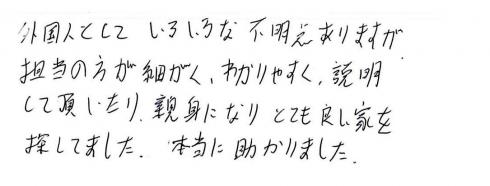 外国人として いろいろな 不明点ありますが
担当の方が細がく、わかりやすく、説明
して頂いたり、親身になり とても良い家を
探してました. 本当に助かりました.